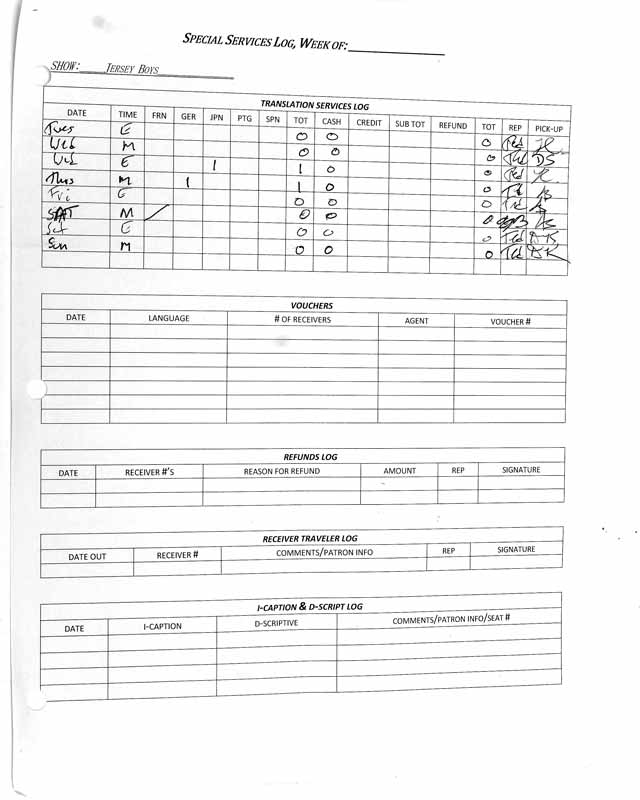 SPECIAL SERVICES LOG, WEEK OF:
SHOW: JERSEY BOYS
TRANSLATION SERVICES LOG
DATE TIME FRN GER JPN PTG SPN TOT CASH CREDIT SUB TOT REFUND TOT REP PICK-UP
Tues E 0 0 0
Wed M 0 0 0
Wed E 1 1 0 0 DS
Thus M 1 1 0 0
Fri E 0 0 0
SAT M 0 0 0
Sat E 0 0 0 DK
Sun M 0 0 0 DK
VOUCHERS
DATE LANGUAGE # OF RECEIVERS AGENT VOUCHER #
REFUNDS LOG
DATE RECEIVER #'S REASON FOR REFUND AMOUNT REP SIGNATURE
RECEIVER TRAVELER LOG
DATE OUT RECEIVER # COMMENTS/PATRON INFO REP SIGNATURE
I-CAPTION & D-SCRIPT LOG
DATE I-CAPTION D-SCRIPTIVE COMMENTS/PATRON INFO/SEAT #